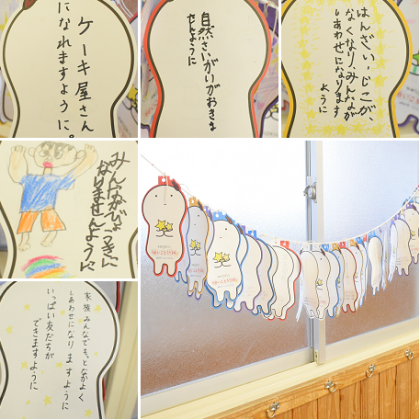 ケーキ屋さん
になれますように。
自然さいがいがおきま
せんように
はんざい、じこが、
なくなり、みんなが
しあわせになります
ように
みんながびょうきに
なりませんように
家族みんなでもっとなかよく
しあわせになりますように
いっぱい友だちが
できますように